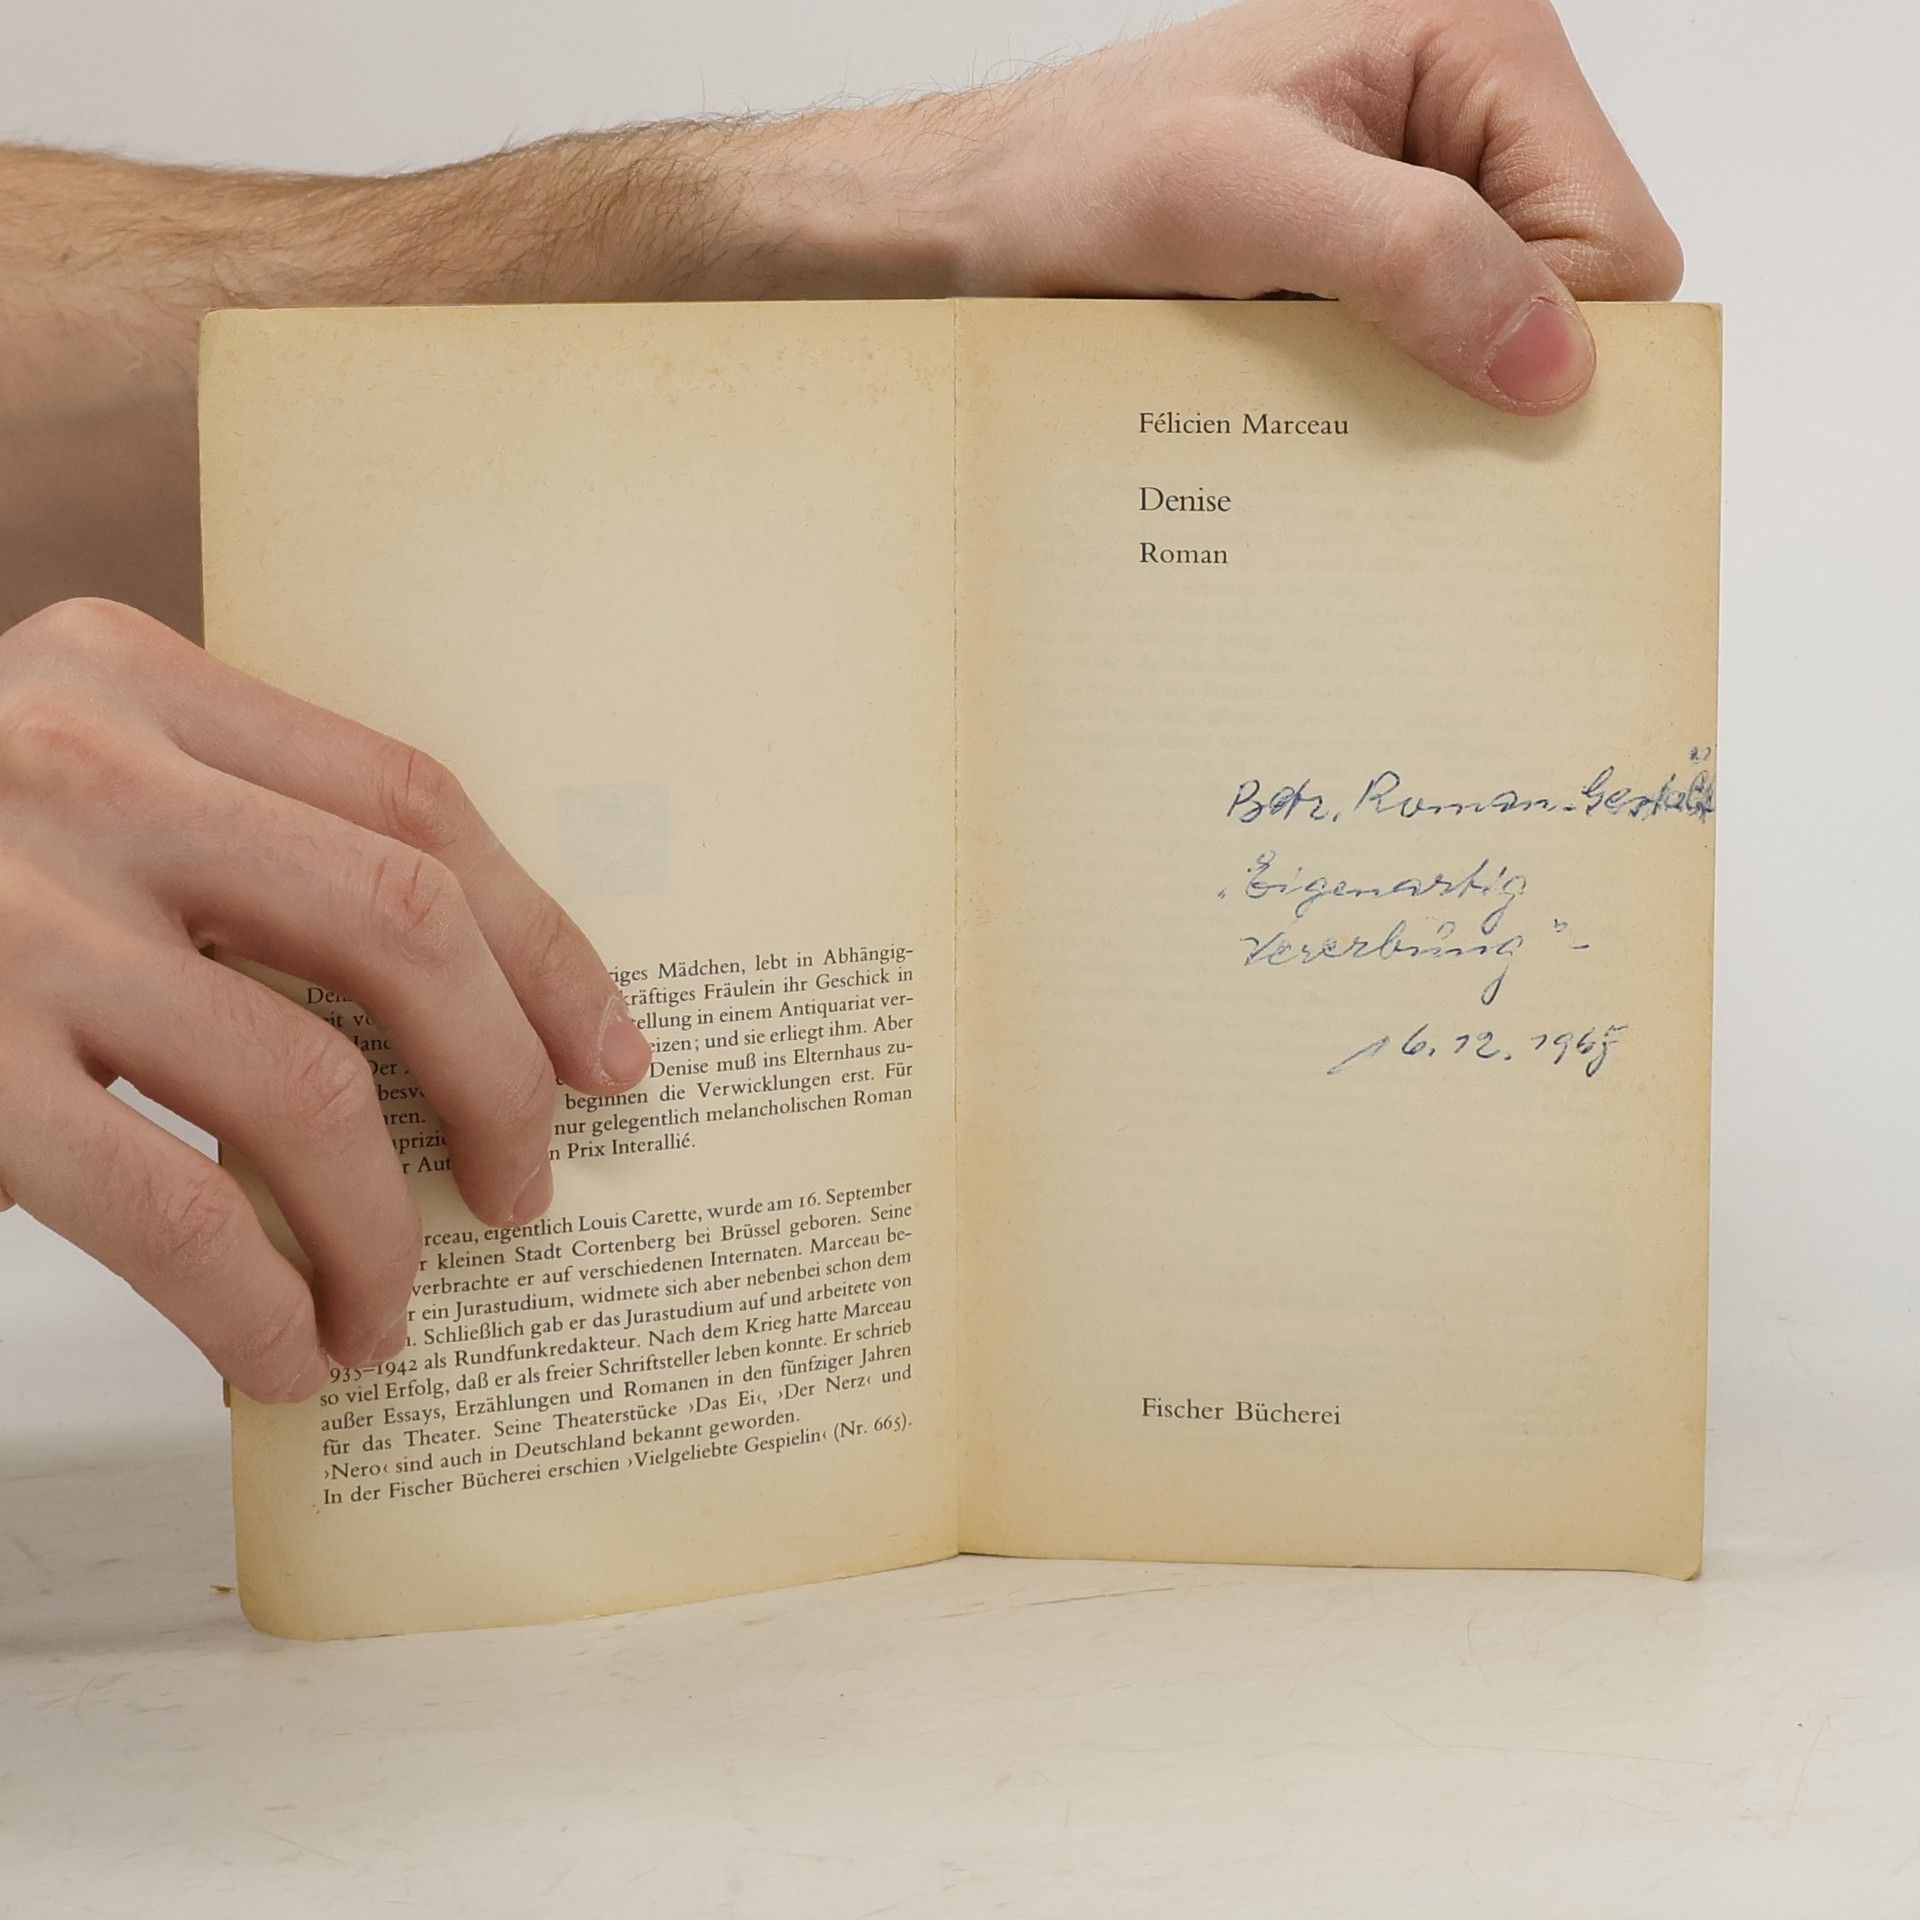 riges Mädchen, lebt in Abhängig-
kräftiges Fräulein ihr Geschick in
ellung in einem Antiquariat ver-
eizen; und sie erliegt ihm. Aber
Der Denise muß ins Elternhaus zu-
beginnen die Verwicklungen erst. Für
nur gelegentlich melancholischen Roman
n Prix Interallié.
rceau, eigentlich Louis Carette, wurde am 16. September
r kleinen Stadt Cortenberg bei Brüssel geboren. Seine
verbrachte er auf verschiedenen Internaten. Marceau be-
r ein Jurastudium, widmete sich aber nebenbei schon dem
n. Schließlich gab er das Jurastudium auf und arbeitete von
935–1942 als Rundfunkredakteur. Nach dem Krieg hatte Marceau
so viel Erfolg, daß er als freier Schriftsteller leben konnte. Er schrieb
außer Essays, Erzählungen und Romanen in den fünfziger Jahren
für das Theater. Seine Theaterstücke ›Das Ei‹, ›Der Nerz‹ und
›Nero‹ sind auch in Deutschland bekannt geworden.
In der Fischer Bücherei erschien ›Vielgeliebte Gespielin‹ (Nr. 665).
Félicien Marceau
Denise
Roman
Betr. Roman-
„Eigenartig
Vererbung"-
16.12.196
Fischer Bücherei